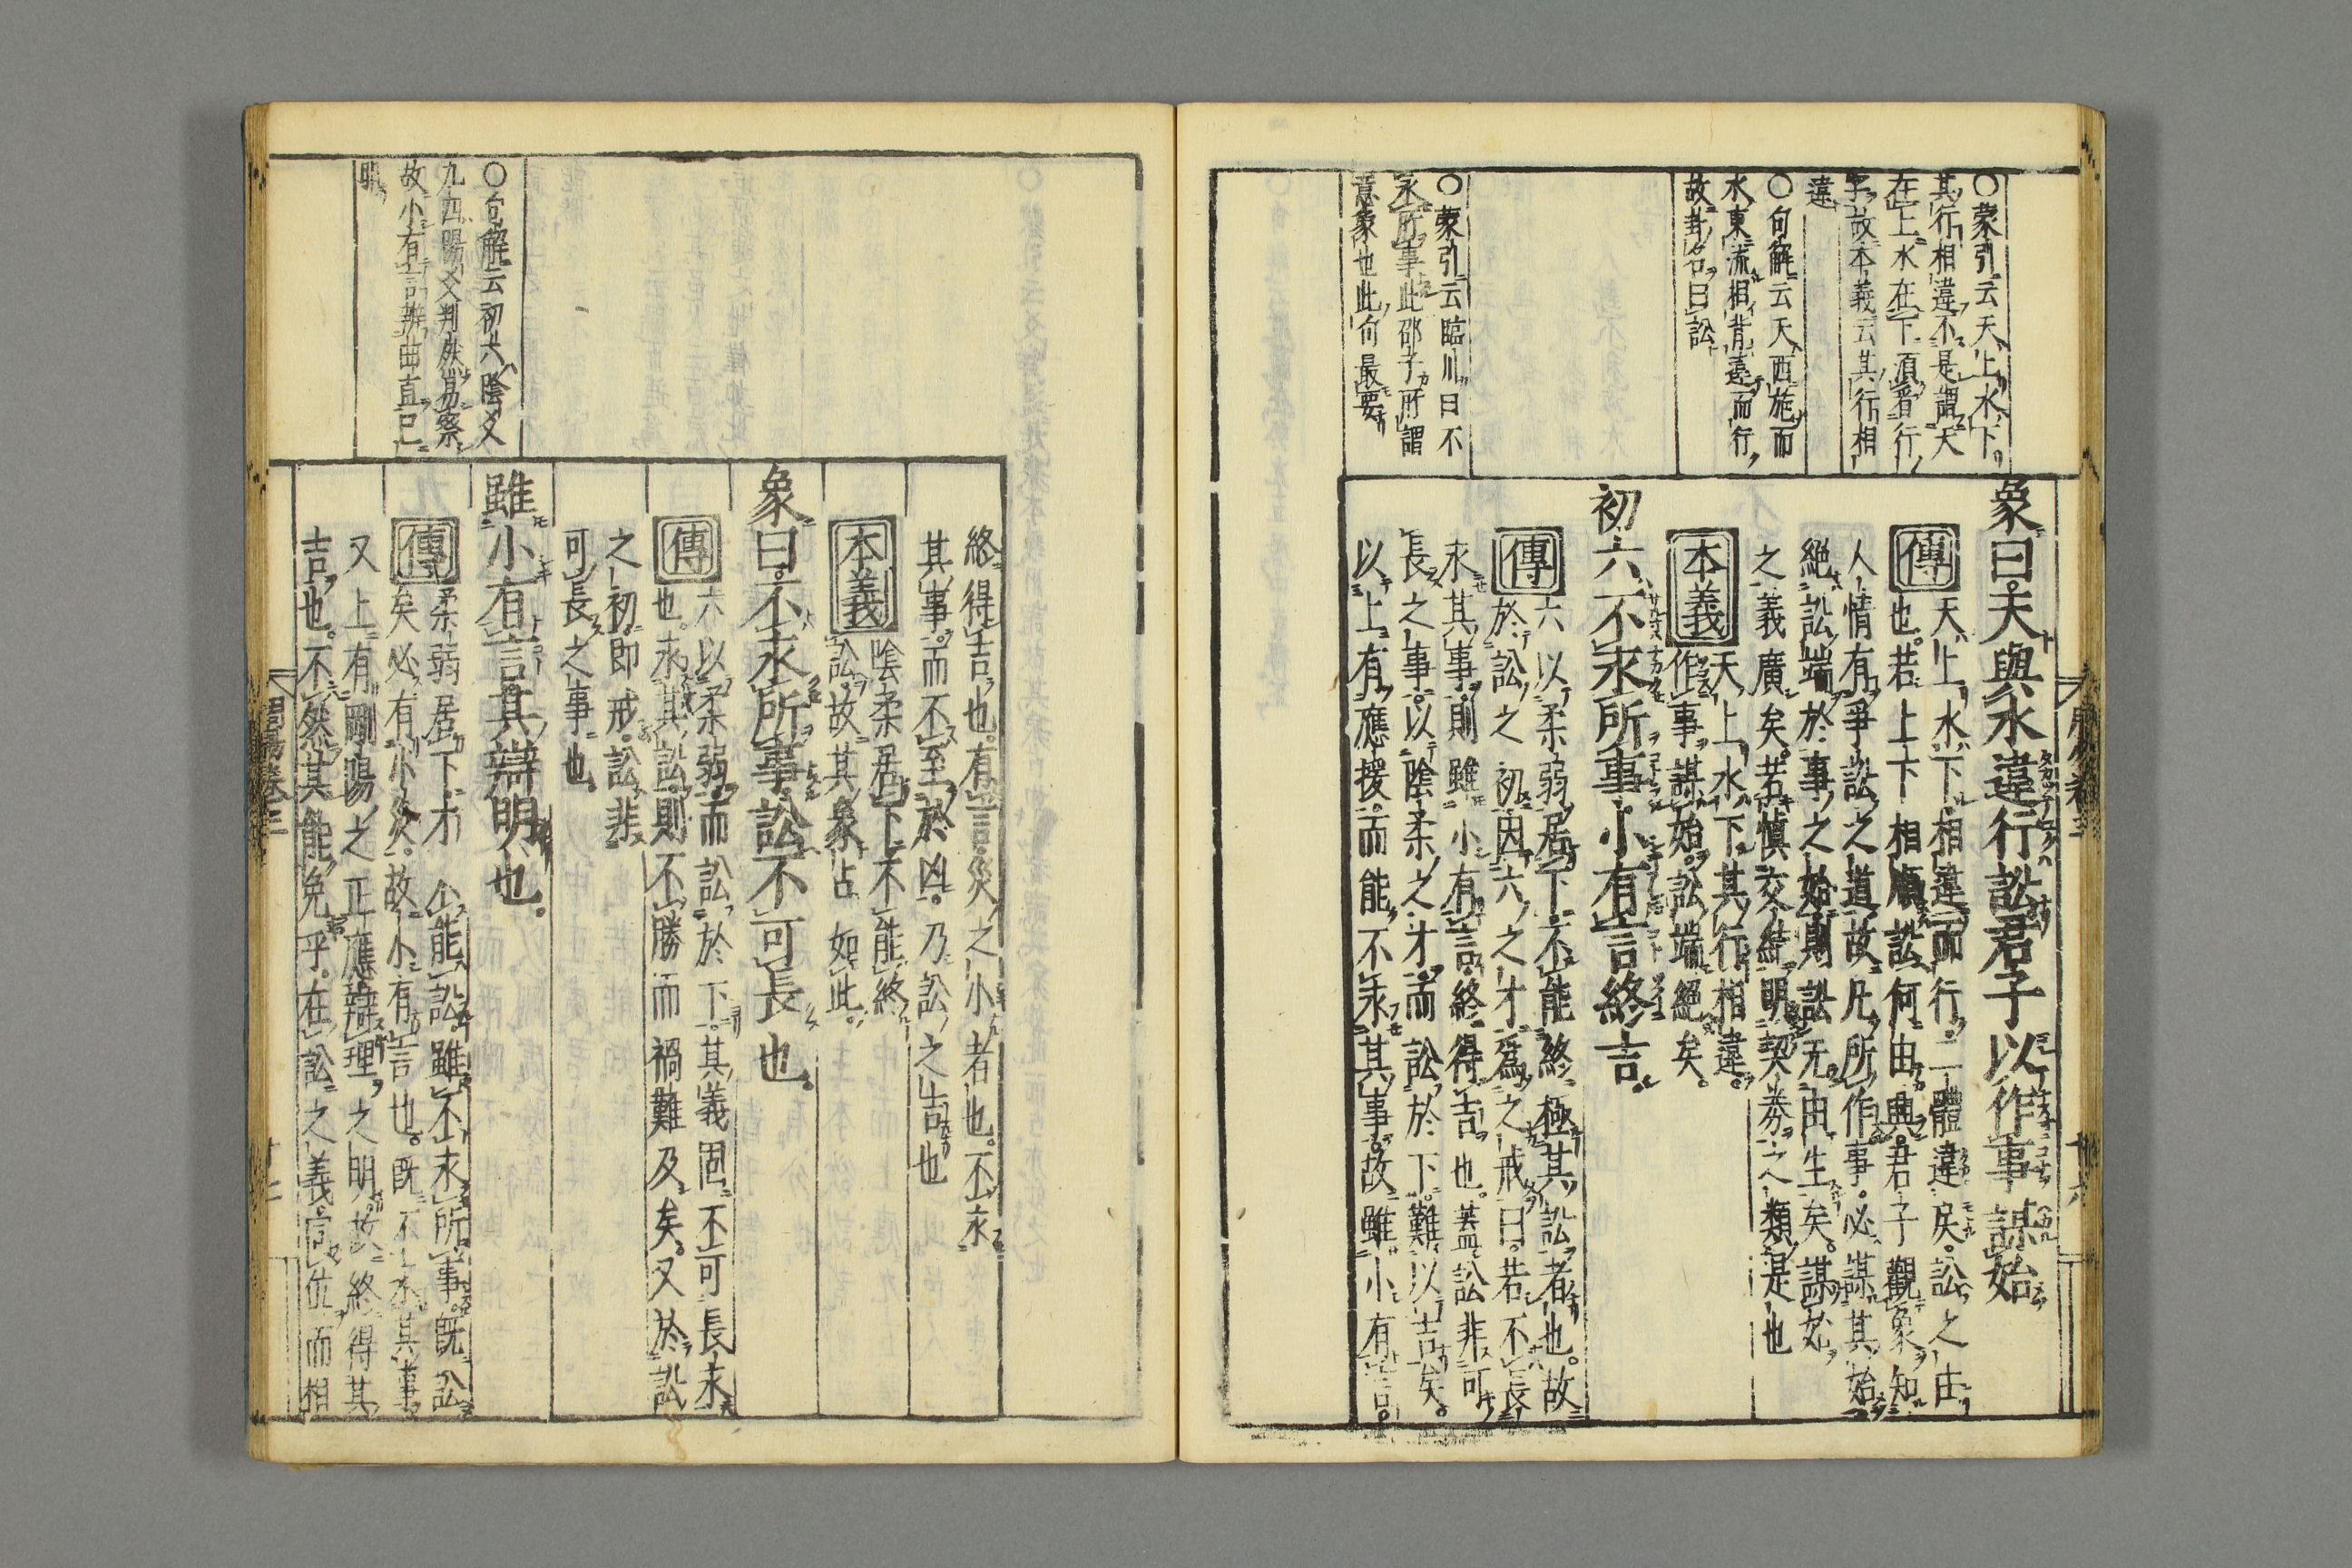 ○蒙引云天上水下
其行相違不是謂天
在上水在下須看行
字故本義云其行相
違
○句解云天西旋而
水東流相背違而行
故卦名曰訟
○蒙引云臨川曰不
永所事此邵子所謂
意象也此句最要
象曰天與水違行訟君子以作事謀始
傳
天上水下相違而行二體違戾訟之由
也若上下相順訟何由興君子觀象知
人情有爭訟之道故凡所作事必謀其始
絕訟端於事之始則訟无由生矣謀始
之義廣矣若慎交結明契券之類是也
本義
天上水下其行相違
作事謀始訟端絕矣
初六不永所事小有言終吉
傳
六以柔弱居下不能終極其訟者也故
於訟之初因六之才爲之戒曰若不長
永其事則雖小有言終得吉也蓋訟非可
長之事以陰柔之才而訟於下難以吉矣
以上有應援而能不永其事故雖小有言
終得吉也有言災之小者也不永
其事而不至於凶乃訟之吉也
本義
陰柔居下不能終
訟故其象占如此
象曰不永所事訟不可長也
傳
六以柔弱而訟於下其義固不可長永
也永其訟則不勝而禍難及矣又於訟
之初即戒訟非
可長之事也
雖小有言其辯明也
傳
柔弱居下才不能訟雖不永所事既訟
矣必有小災故小有言也既不永其事
又上有剛陽之正應辯理之明故終得其
吉也不然其能免乎在訟之義言位而相
○句解云初六陰爻
九四陽爻判然易察
故小有言辨曲直已
明
周易卷三